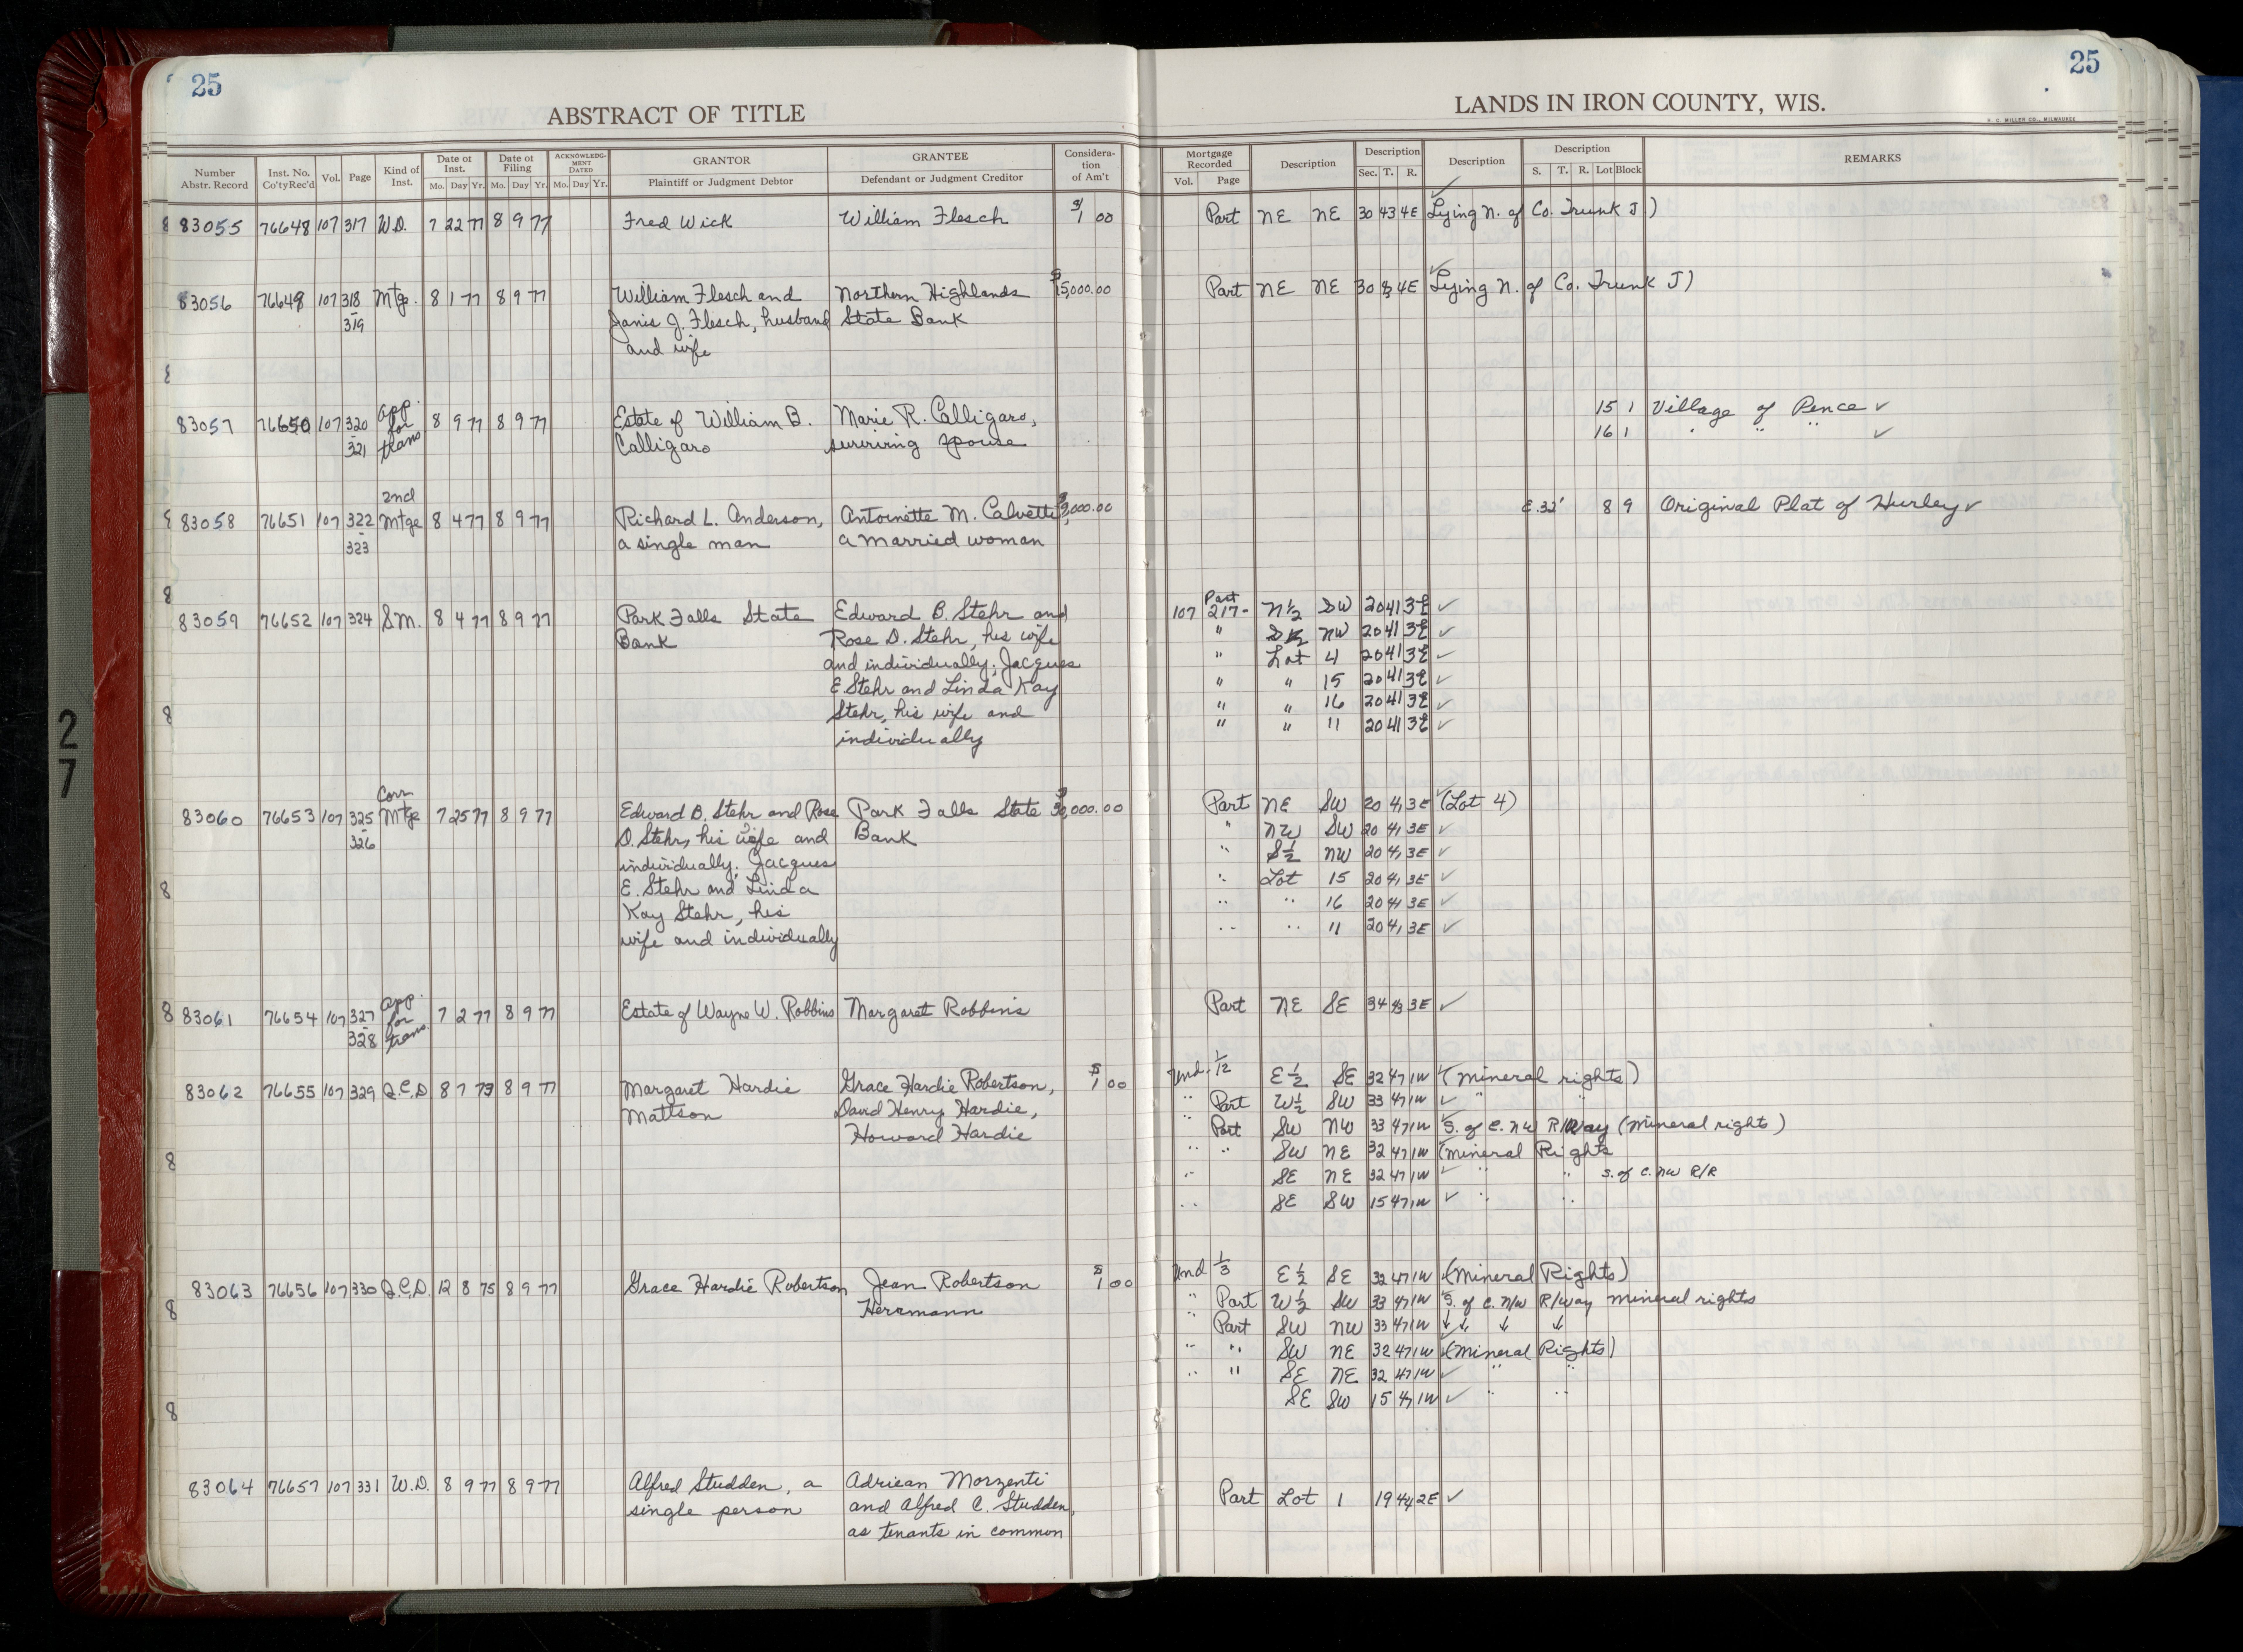 25
25
ABSTRACT OF TITLE
LANDS IN IRON COUNTY, WIS.
H. C. MILLER CO., MILWAUKEE
Number Abstr. Record | Inst. No. Co'tyRec'd | Vol. | Page | Kind of Inst. | Date of Inst. Mo. Day Yr. | Date of Filing Mo. Day Yr. | ACKNOWLEDG-MENT DATED Mo. Day Yr. | GRANTOR Plaintiff or Judgment Debtor | GRANTEE Defendant or Judgment Creditor | Considera-tion of Am't | Mortgage Recorded Vol. Page | Description | Description Sec. T. R. | Description | Description S. T. R. Lot Block | REMARKS
83055 76648 107 317 W.D. 7 22 77 8 9 77 Fred Wick William Flesch $1 00 Part NE NE 30 43 4E Lying N. of Co. Trunk J)
83056 76649 107 318 Mtge. 8 1 77 8 9 77 William Flesch and Northern Highlands $15,000.00 Part NE NE 30 43 4E Lying N. of Co. Trunk J)
319 Janis J. Flesch, husband State Bank
and wife
15 1 Village of Pence ✓
83057 76650 107 320 App. for trans 8 9 77 8 9 77 Estate of William B. Marie R. Calligaro,
321 Calligaro surviring spouse 16 1 " " " ✓
2nd
83058 76651 107 322 Mtge 8 4 77 8 9 77 Richard L. Anderson, Antoinette M. Calvetti, $3,000.00 E. 32' 8 9 Original Plat of Hurley ✓
323 a single man a married woman
Part
83059 76652 107 324 S.M. 8 4 77 8 9 77 Park Falls State Edward B. Stehr and 107 217- N½ SW 20 41 3E ✓
Bank Rose D. Stehr, his wife " S½ NW 20 41 3E ✓
and individually; Jacques " Lot 4 20 41 3E ✓
E. Stehr and Linda Kay " " 15 20 41 3E ✓
Stehr, his wife and " " 16 20 41 3E ✓
individually " " 11 20 41 3E ✓
Corr
83060 76653 107 325 Mtge 7 25 77 8 9 77 Edward B. Stehr and Rose Park Falls State $30,000.00 Part NE SW 20 41 3E (Lot 4)
326 D. Stehr, his wife and Bank " NW SW 20 41 3E ✓
individually; Jacques " S½ NW 20 41 3E ✓
E. Stehr and Linda " Lot 15 20 41 3E ✓
Kay Stehr, his " " 16 20 41 3E ✓
wife and individually " " 11 20 41 3E ✓
83061 76654 107 327 App. for trans. 7 2 77 8 9 77 Estate of Wayne W. Robbins Margaret Robbins Part NE SE 34 43 3E ✓
328
83062 76655 107 329 Q.C.D 8 7 73 8 9 77 Margaret Hardie Grace Hardie Robertson, $1 00 Und. 1/12 E½ SE 32 47 1W (Mineral rights)
Mattson David Henry Hardie, " Part W½ SW 33 47 1W ✓ " "
Howard Hardie " Part SW NW 33 47 1W S. of C. NW R/Way (Mineral rights)
" " SW NE 32 47 1W (Mineral Rights
" SE NE 32 47 1W ✓ " " S. of C. NW R/R
" SE SW 15 47 1W ✓ " "
83063 76656 107 330 Q.C.D. 12 8 75 8 9 77 Grace Hardie Robertson Jean Robertson $1 00 Und 1/3 E½ SE 32 47 1W (Mineral Rights)
Herrmann " Part W½ SW 33 47 1W S. of C. N/W R/Way Mineral rights
" Part SW NW 33 47 1W ↓ ↓ ↓ ↓
" " SW NE 32 47 1W (Mineral Rights)
" " SE NE 32 47 1W ✓ " "
SE SW 15 47 1W ✓ " "
83064 76657 107 331 W.D. 8 9 77 8 9 77 Alfred Studden, a Adriean Morzenti
single person and Alfred C. Studden, Part Lot 1 19 44 2E ✓
as tenants in common
27